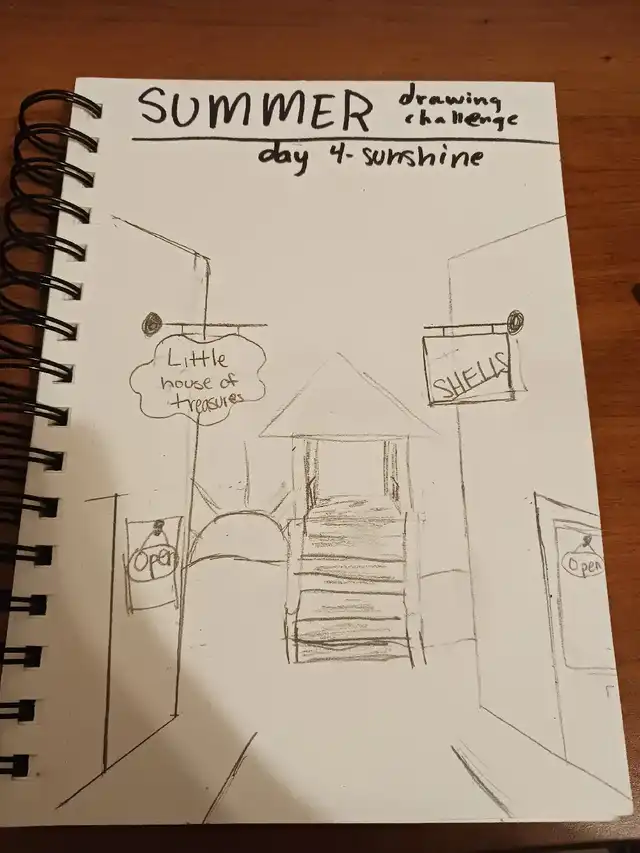 SUMMER drawing
challenge
day 4- sunshine
Little
house of
treasures
SHELLS
Open
Open